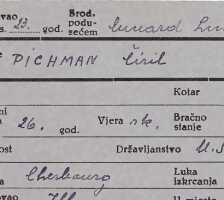 vao
s. 23. god. Brod. podu- zećem Cunard Lin
PICHMAN Ćiril
Kotar
ni
26. god. Vjera rk. Bračno stanje
ost Državljanstvo U.S.
a Cherbourg Luka izkrcanja
ovao
U mjesto